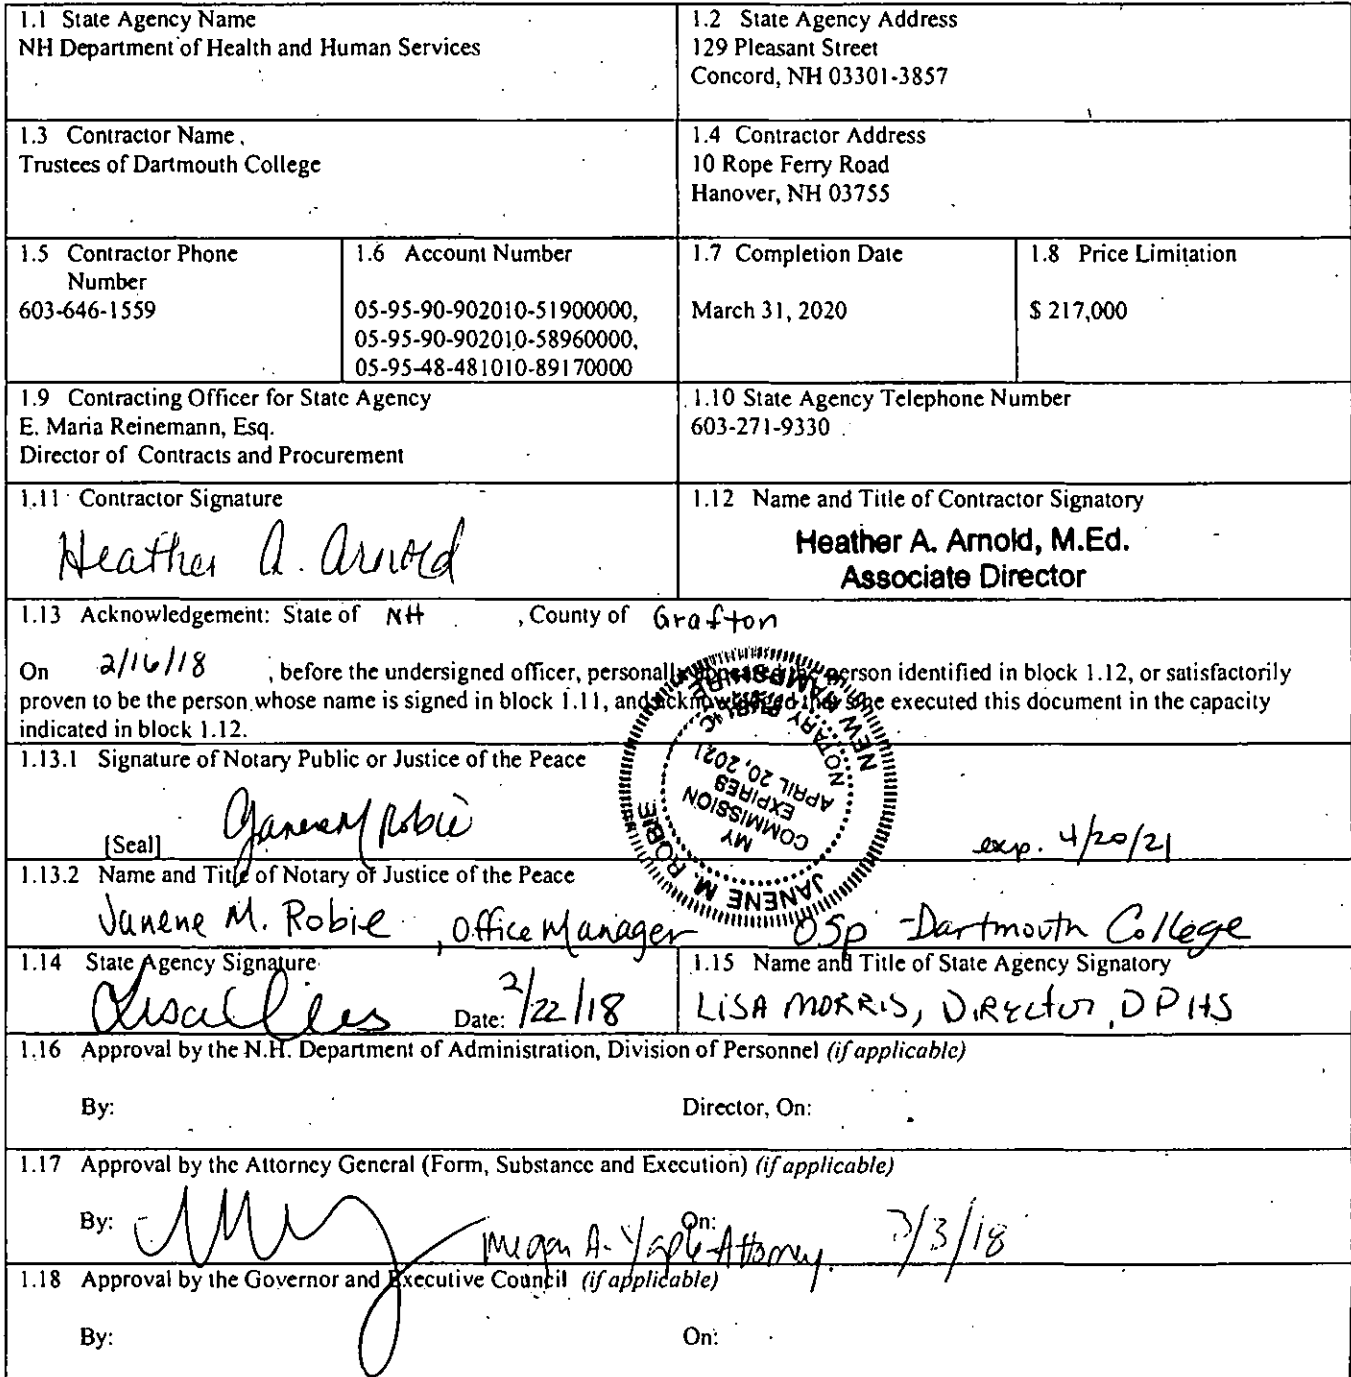 1.1 State Agency Name
NH Department of Health and Human Services
1.2 State Agency Address
129 Pleasant Street
Concord, NH 03301-3857
1.3 Contractor Name
Trustees of Dartmouth College
1.4 Contractor Address
10 Rope Ferry Road
Hanover, NH 03755
1.5 Contractor Phone
Number
603-646-1559
1.6 Account Number
05-95-90-902010-51900000,
05-95-90-902010-58960000,
05-95-48-481010-89170000
1.7 Completion Date
March 31, 2020
1.8 Price Limitation
$ 217,000
1.9 Contracting Officer for State Agency
E. Maria Reinemann, Esq.
Director of Contracts and Procurement
1.10 State Agency Telephone Number
603-271-9330
1.11 Contractor Signature
Heather A. Arnold
1.12 Name and Title of Contractor Signatory
Heather A. Arnold, M.Ed.
Associate Director
1.13 Acknowledgement: State of NH , County of Grafton
On 2/16/18 , before the undersigned officer, personally person identified in block 1.12, or satisfactorily
proven to be the person whose name is signed in block 1.11, and executed this document in the capacity
indicated in block 1.12.
1.13.1 Signature of Notary Public or Justice of the Peace
[Seal] Janene M Robie
JANENE M. ROBIE
NEW HAMPSHIRE
NOTARY PUBLIC
MY
COMMISSION
EXPIRES
APRIL 20, 2021
exp. 4/20/21
1.13.2 Name and Title of Notary or Justice of the Peace
Janene M. Robie, Office Manager OSP - Dartmouth College
1.14 State Agency Signature
Date: 2/22/18
1.15 Name and Title of State Agency Signatory
LISA MORRIS, DIRECTOR, DPHS
1.16 Approval by the N.H. Department of Administration, Division of Personnel (if applicable)
By: Director, On:
1.17 Approval by the Attorney General (Form, Substance and Execution) (if applicable)
By: On:
Megan A. Yaple-Attorney 3/3/18
1.18 Approval by the Governor and Executive Council (if applicable)
By: On: